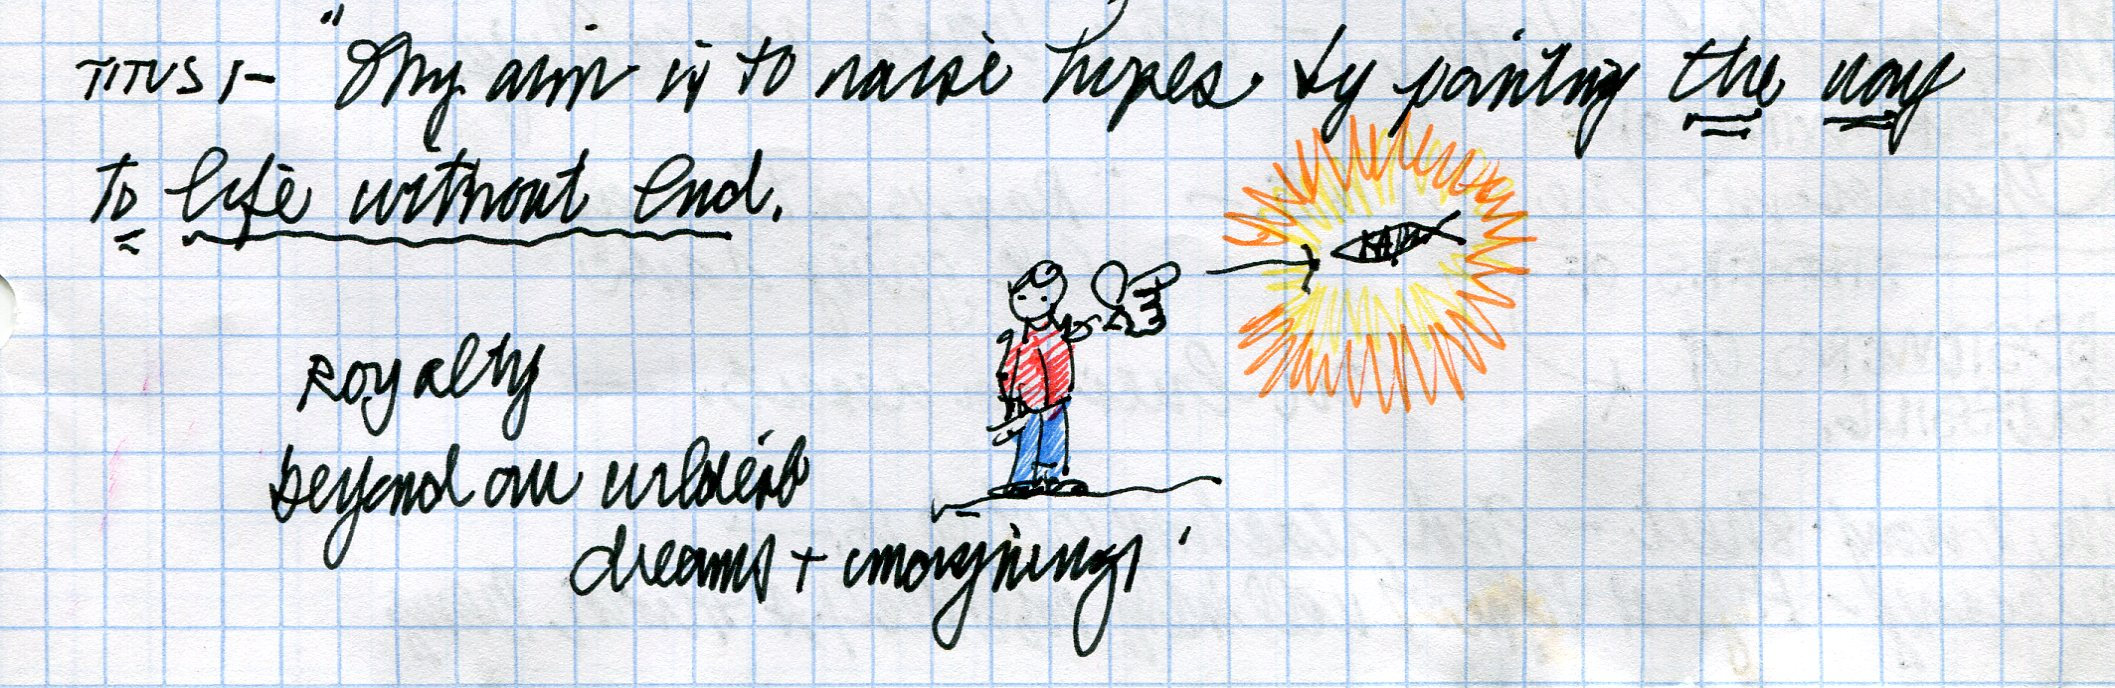 TITUS 1- "My aim is to raise hopes by pointing the way
to life without end.
Royalty
beyond our wildest
dreams + imaginings'